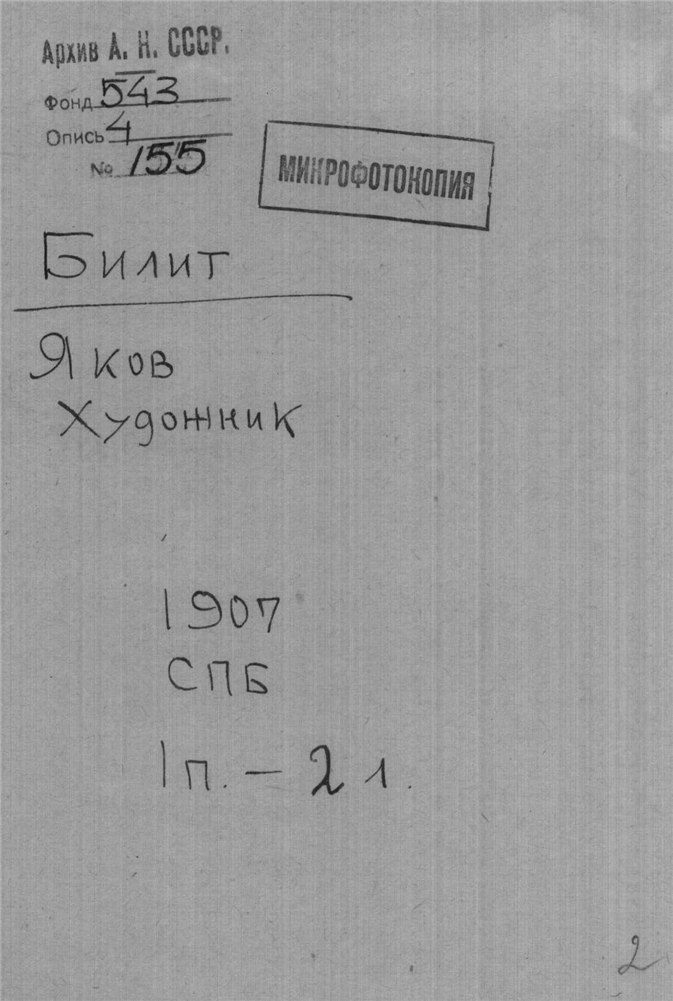 Архив А. Н. СССР.
Фонд 543
Опись 4
№ 155
МИКРОФОТОКОПИЯ
Билит
Яков
Художник
1907
СПБ
1 п. – 2 л.
2